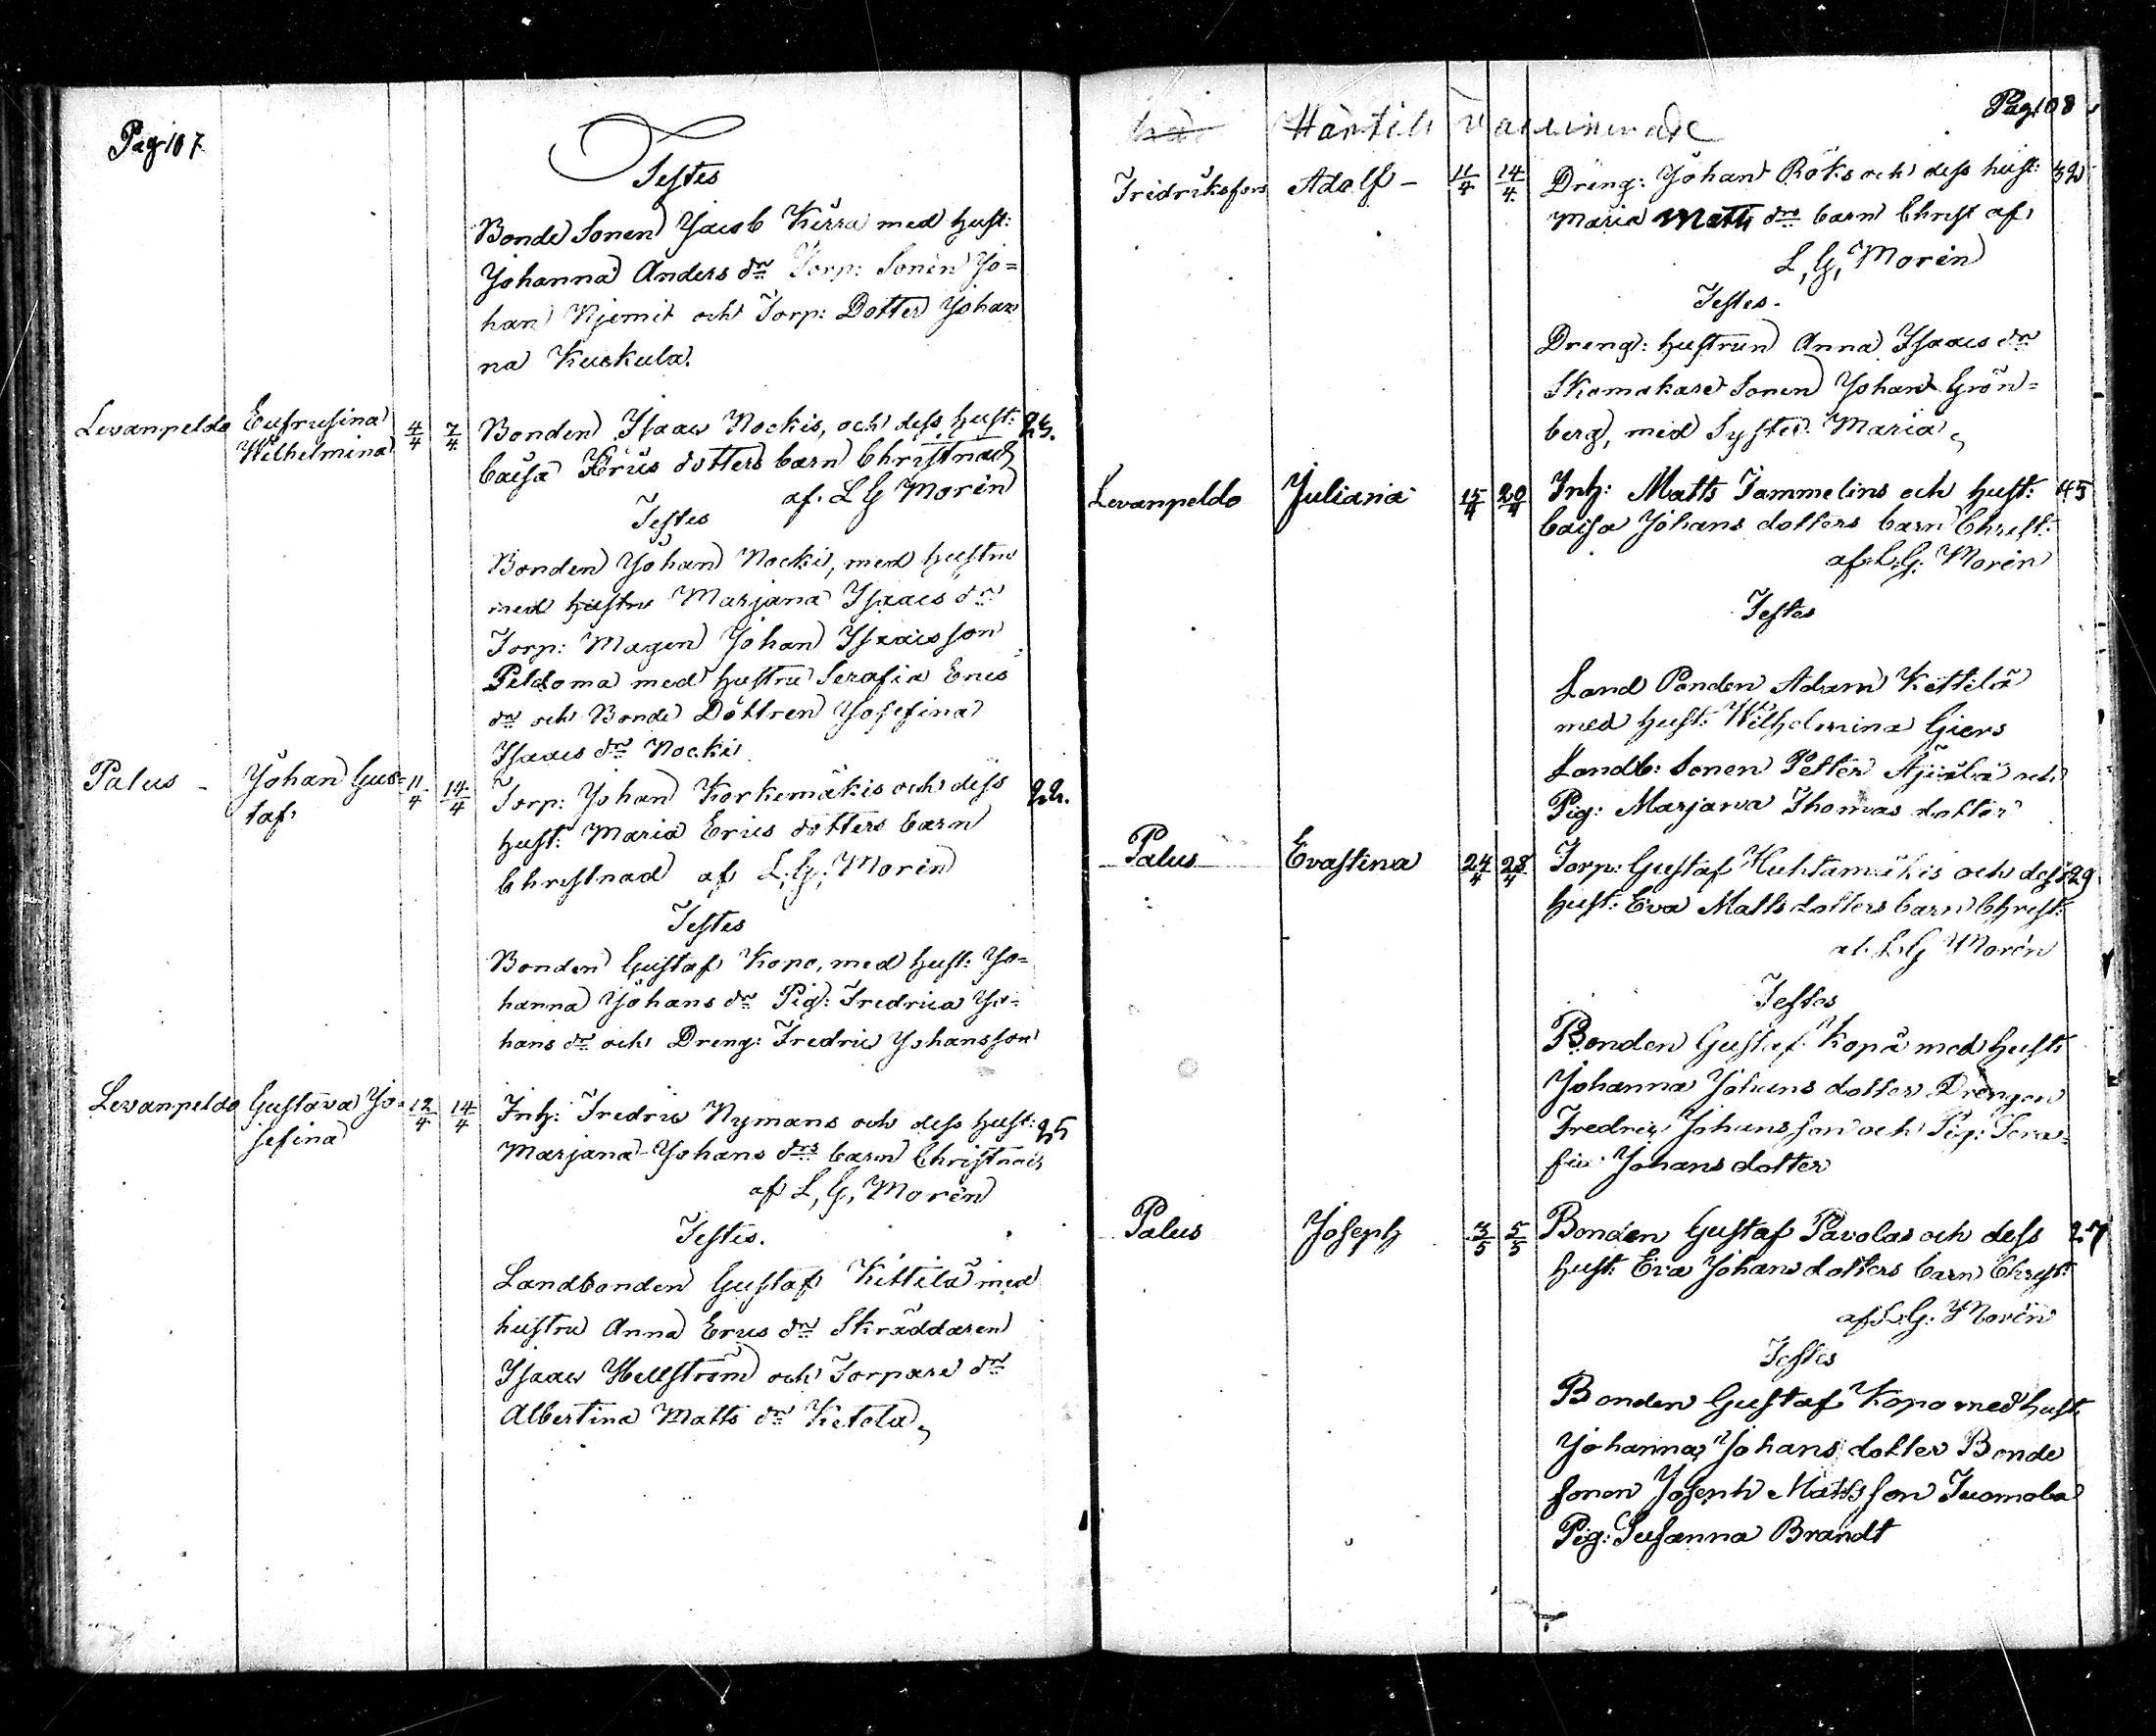 Pag 107
Testes
Bonde Sonen Jacob Kerra med hust:
Johanna Anders dr Torp: Sonen Jo=
han Njemit och Torp: Dotter Johan
na Kuskula.
Levanpeldo Eufrusina Wilhelmina 4/4 7/4 Bonden Isaac Nockis, och dess hust: 23.
Caisa Erics dotters barn Christnadt
af. L G Morén
Testes
Bonden Johan Nockis, med hustru
med hustru Marjana Isaacs dr
Torp: Magen Johan Isaacsson
Peldoma med hustru Serafia Erics
dr och Bonde Döttren Josefina
Isaacs dr Nocki
Palus - Johan Gus= taf 11/4 14/4 Torp: Johan Korkemäkis och dess 22.
hust: Maria Erics dotters barn
Christnad af L. G. Morén
Testes
Bonden Gustaf Kopo, med hust: Jo=
hanna Johans dr Pig: Fredrica Jo=
hans dr och Dreng: Fredric Johansson
Levanpeldo Gustava Jo= sefina 12/4 14/4 Inh: Fredric Nymans och dess hust: 25
Marjana Johans drs barn Christnadt
af L, G, Morén
Testis.
Landbonden Gustaf Kittilä med
hustru Anna Erics dr Skräddaren
Isaac Hellström och Torpare dr
Albertina Matts dr Ketola,
Pag 108
Härtils vaccinerade
Fridriksfors Adolf - 11/4 14/4 Dreng: Johan Röks och dess hust: 32
Maria Matts drs barn Christ af
L, G, Morén
Testes.
Dreng: hustrun Anna Isaacs dr
Skomakare Sonen Johan Grön=
berg, med Syster Maria,
Levanpeldo Juliana 15/4 20/4 Inh: Matts Tammelins och hust: 45
Caisa Johans dotters barn Christ:
af L. G. Morén
Testes
Land Bonden Adam Kettilä
med hust: Wilhelmina Giers
Landb: Sonen Petter Äjälä och
Pig: Marjana Thomas dotter
Palus Evastina 24/4 28/4 Torp: Gustaf Huhtamäkis och dess 29
hust: Eva Matts dotters barn Christ:
af L G Morén
Testes
Bonden Gustaf Kopo med hust:
Johanna Johans dotter Drengen
Fredric Johansson och Pig: Sera=
fia Johans dotter
Palus Joseph 3/5 5/5 Bonden Gustaf Pavolas och dess 27
hust: Eva Johans dotters barn Christ:
af L. G. Morén
Testes
Bonden Gustaf Kopo med hust:
Johanna Johans dotter Bonde
sonen Joseph Mattsson Tuomola
Pig: Susanna Brandt